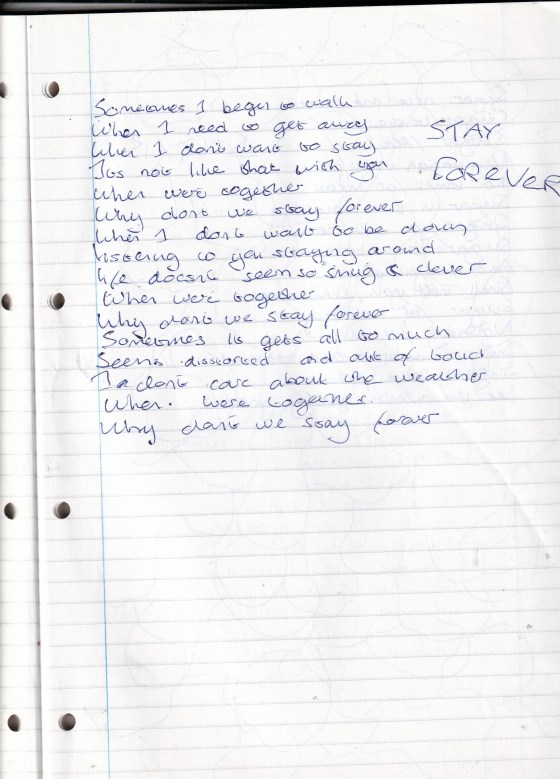 STAY
FOREVER
Sometimes I begin to walk
When I need to get away
When I dont want to stay
Its not like that with you
When were together
Why dont we stay forever
When I dont want to be down
listening to you staying around
life doesnt seem so smug & clever
When were together
Why dont we stay forever
Sometimes it gets all to much
Seems distorted and out of touch
I dont care about the weather
When. were together.
Why dont we stay forever